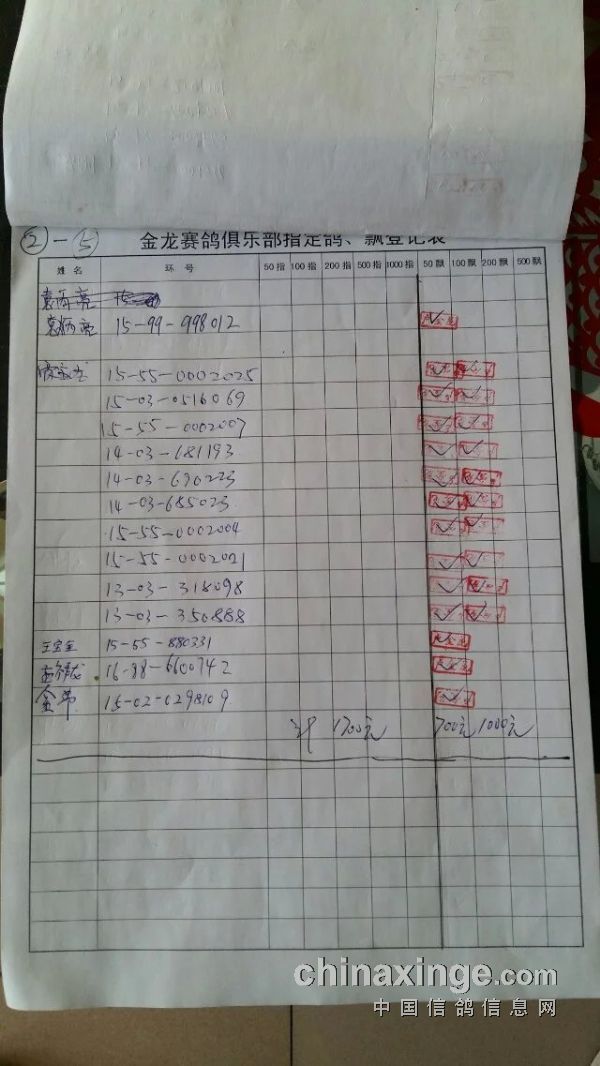 ②-⑤ 金龙赛鸽俱乐部指定鸽、飘登记表
姓名 环号 50指 100指 200指 500指 1000指 50飘 100飘 200飘 500飘
15-99-998012
15-55-0002025
15-03-0516069
15-55-0002007
14-03-681193
14-03-690223
14-03-685023
15-55-0002004
15-55-0002021
13-03-318098
13-03-350888
王宝玉 15-55-880331
16-88-6600742
金苇 15-02-0298109
计 1700元 700元 1000元
chinaxinge.com
中国信鸽信息网